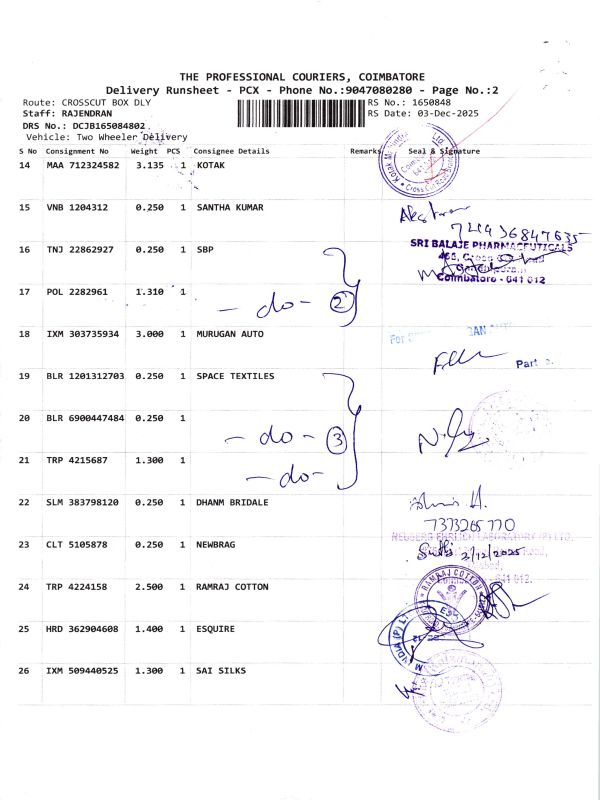 THE PROFESSIONAL COURIERS, COIMBATORE
Delivery Runsheet - PCX - Phone No.:9047080280 - Page No.:2
Route: CROSSCUT BOX DLY
RS No.: 1650848
Staff: RAJENDRAN
RS Date: 03-Dec-2025
DRS No.: DCJB165084802
Vehicle: Two Wheeler Delivery
S No Consignment No Weight PCS Consignee Details Remarks Seal & Signature
14 MAA 712324582 3.135 1 KOTAK
15 VNB 1204312 0.250 1 SANTHA KUMAR
16 TNJ 22862927 0.250 1 SBP
SRI BALAJE PHARMACEUTICALS
Coimbatore - 641 012
17 POL 2282961 1.310 1
- do - 2
18 IXM 303735934 3.000 1 MURUGAN AUTO
For
19 BLR 1201312703 0.250 1 SPACE TEXTILES
20 BLR 6900447484 0.250 1
- do - 3
21 TRP 4215687 1.300 1
- do -
22 SLM 383798120 0.250 1 DHANM BRIDALE
7373265770
23 CLT 5105878 0.250 1 NEWBRAG
2/12/2025
24 TRP 4224158 2.500 1 RAMRAJ COTTON
RAMRAJ COTTON
25 HRD 362904608 1.400 1 ESQUIRE
26 IXM 509440525 1.300 1 SAI SILKS